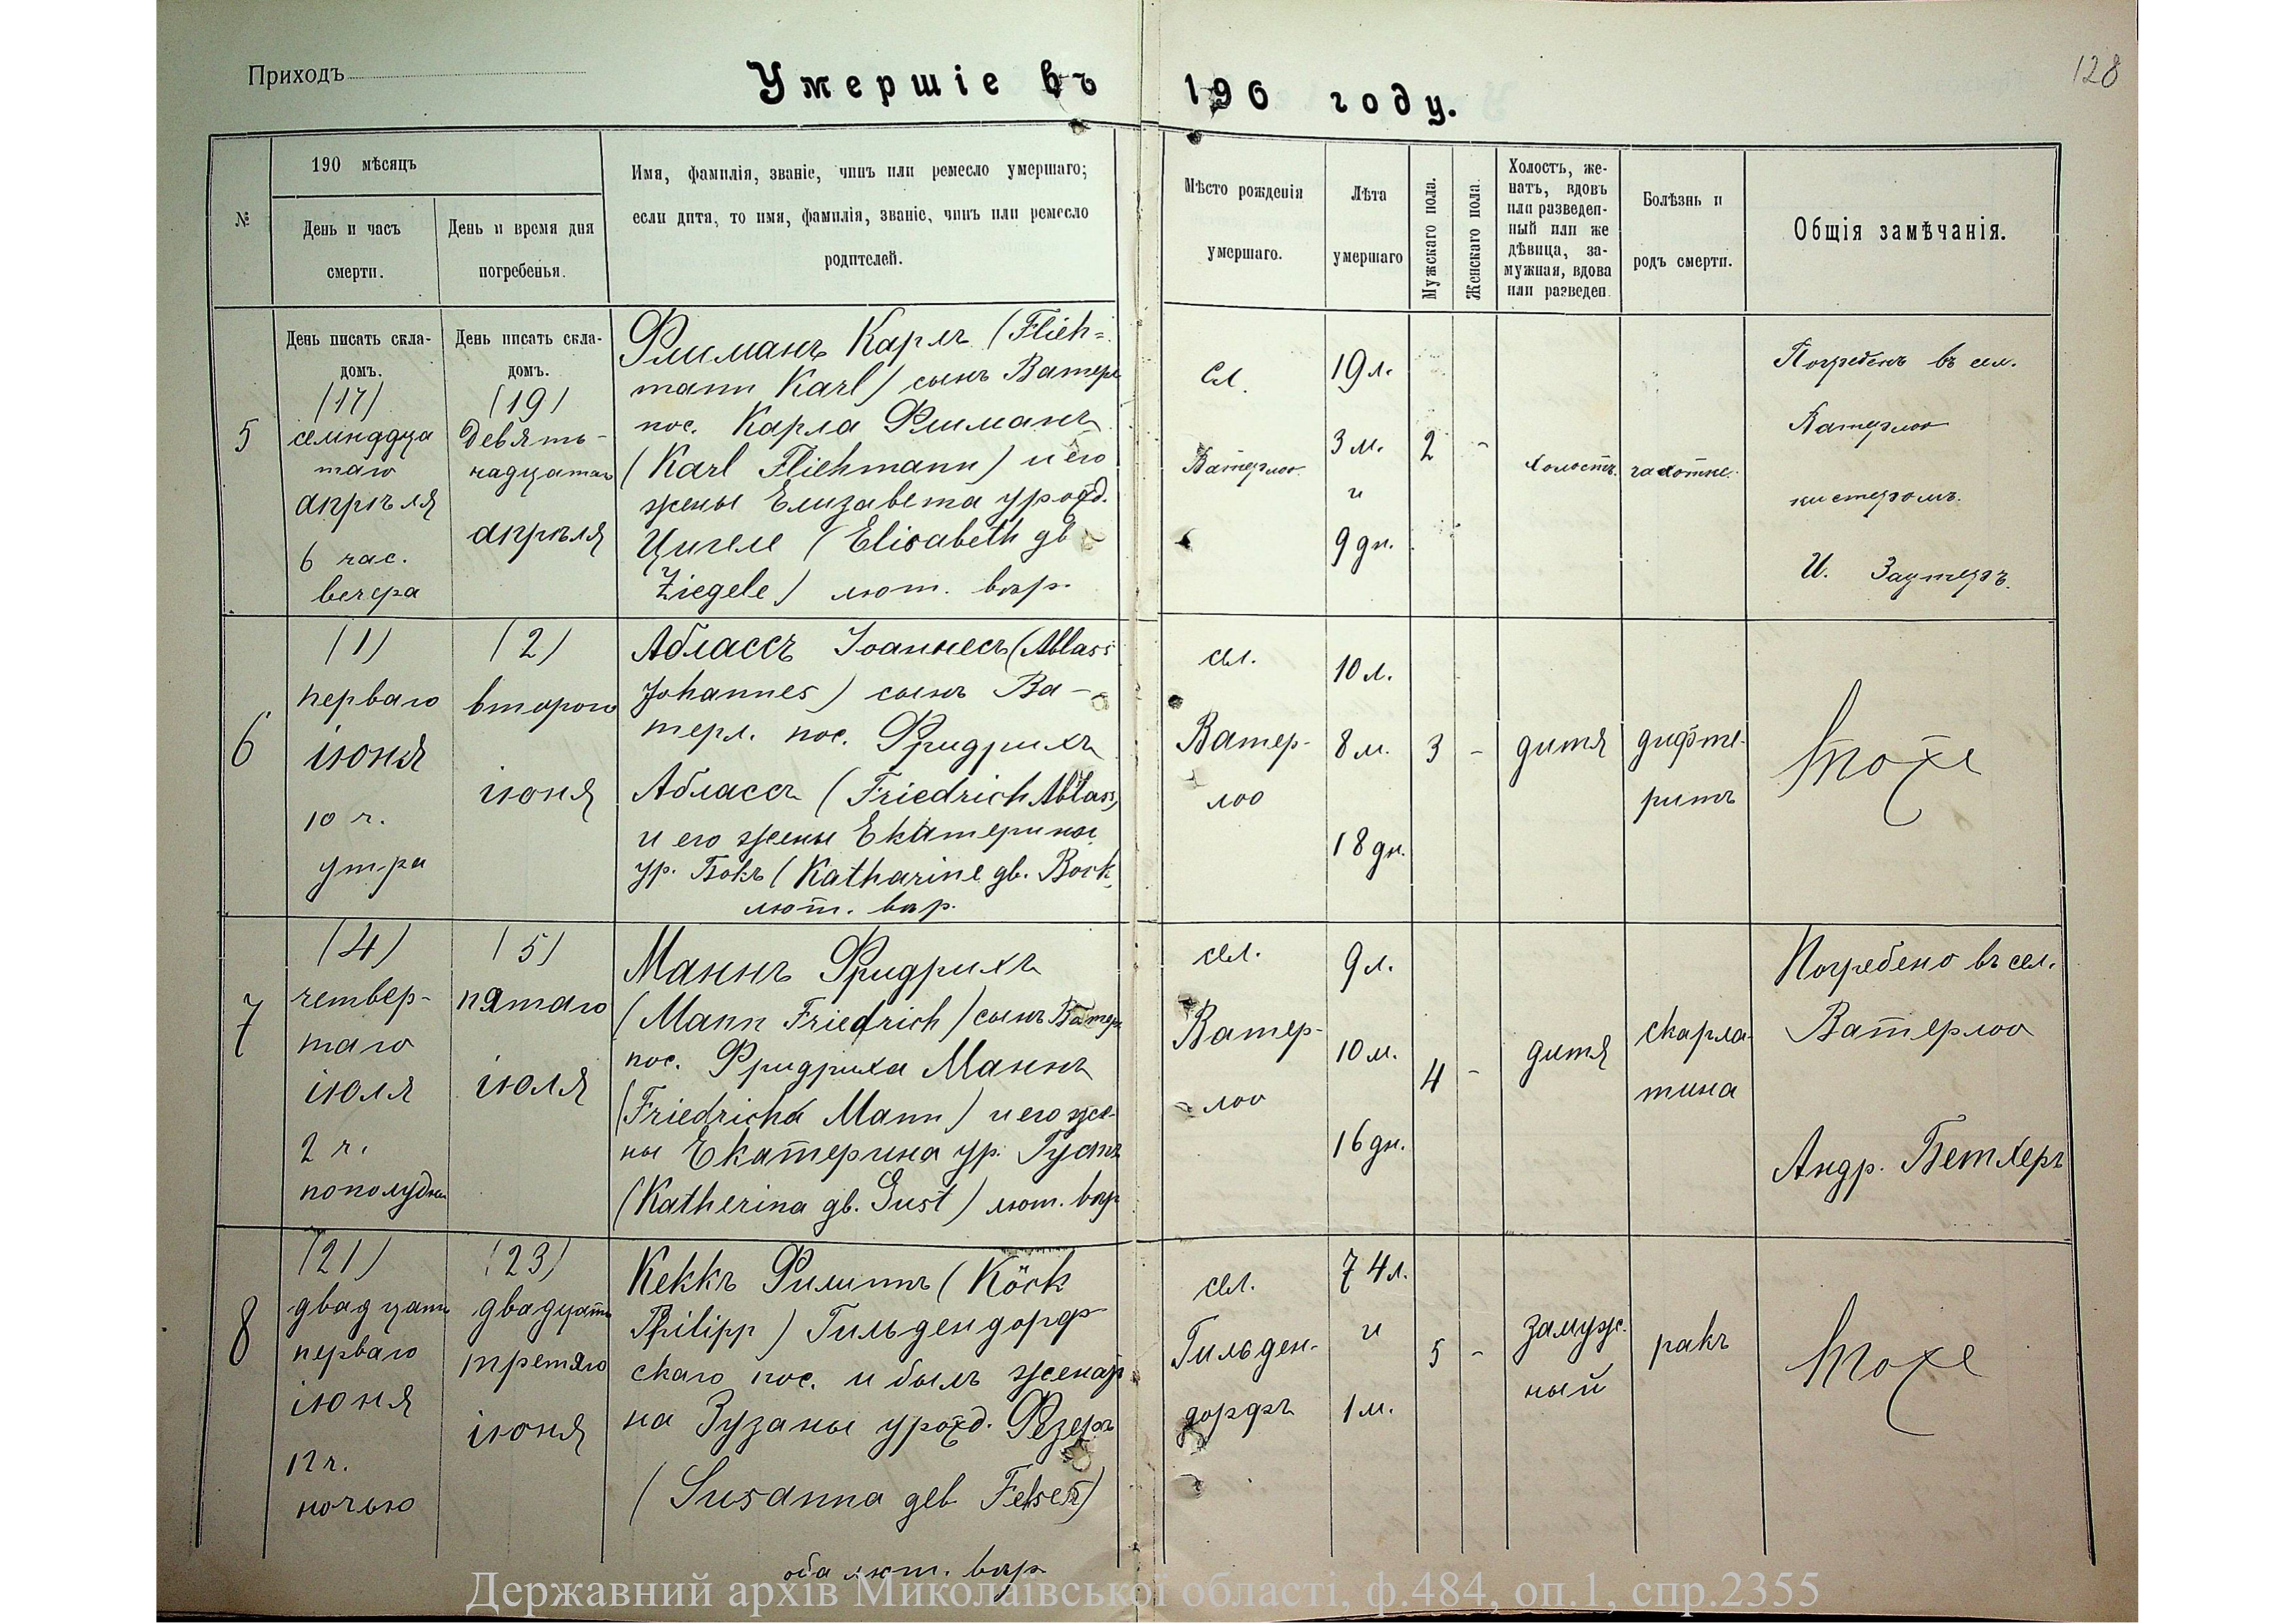 Приходъ
Умершіе въ 190 году.
128
№
190 мѣсяцъ
День и часъ
смерти.
День и время дня
погребенья.
Имя, фамилія, званіе, чинъ или ремесло умершаго;
если дитя, то имя, фамилія, званіе, чинъ или ремесло
родителей.
Мѣсто рожденія
умершаго.
Лѣта
умершаго
Мужскаго пола.
Женскаго пола.
Холостъ, же-
натъ, вдовъ
или разведен-
ный или же
дѣвица, за-
мужная, вдова
или разведен
Болѣзнь и
родъ смерти.
Общія замѣчанія.
5
День писать скла-
домъ.
(17)
семнадца
таго
апрѣля
6 час.
вечера
День писать скла-
домъ.
(19)
девять-
надцатаго
апрѣля
Флиманъ Карлъ (Flieh=
mann Karl) сынъ Ватерл
пос. Карла Флиманъ
(Karl Fliehmann) и его
жены Елизавета урожд.
Цигеле (Elisabeth gb
Ziegele) лют. вѣр.
Сл.
Ватерлоо.
19 л.
3 м.
и
9 дн.
2
-
холостъ.
чахотке.
Погребенъ въ сел.
Ватерлоо
кистеромъ.
И. Заутеръ.
6
(1)
перваго
іюня
10 ч.
утра
(2)
второго
іюня
Аблассъ Іоаннесъ (Ablass
Johannes) сынъ Ва-
терл. пос. Фридрихъ
Аблассъ (Friedrich Ablass)
и его жены Екатерины
ур. Бокъ (Katharine gb. Bock
лют. вѣр.
сел.
Ватер-
лоо
10 л.
8 м.
18 дн.
3
-
дитя
дифте-
ритъ
тоже
7
(4)
четвер-
таго
іюля
2 ч.
пополудни
(5)
пятаго
іюля
Маннъ Фридрихъ
(Mann Friedrich) сынъ Ватер
пос. Фридриха Маннъ
(Friedricha Mann) и его же-
ны Екатерина ур. Густъ
(Katherina gb. Gust) лют. вѣр
сел.
Ватер-
лоо
9 л.
10 м.
16 дн.
4
-
дитя
скарла-
тина
Погребено въ сел.
Ватерлоо
Андр. Бетхеръ
8
(21)
двадцать
перваго
іюня
12 ч.
ночью
(23)
двадцать
третяго
іюня
Кеккъ Филиппъ (Köck
Philipp) Гильдендорф
скаго пос. и былъ женатъ
на Зузаны урожд. Фезеръ
(Susanna geb Feser)
оба лют. вѣр.
сел.
Гильден-
дорфъ
74 л.
и
1 м.
5
-
замуж-
ный
ракъ
тоже
Державний архів Миколаївської області, ф.484, оп.1, спр.2355